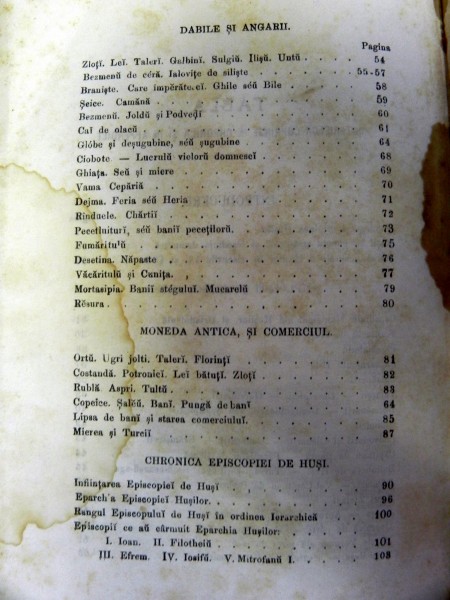 DABILE ȘI ANGARII.
Pagina
Zloți. Leĭ. Talerĭ. Galbinĭ. Sulgiŭ. Ilișŭ. Untŭ . . 54
Bezmenŭ de céră. Ialovițe de siliște . . . . . . 55-57
Braniște. Care împĕrăte.eĭ. Ghile séŭ Bile . . . . 58
Șeice. Camănă . . . . . . . . . 59
Bezmenŭ. Joldŭ și Podveḑĭ . . . . . . . 60
Caĭ de olacŭ . . . . . . . . . . 61
Glóbe și deșugubine, séŭ șugubine . . . . . . 64
Ciobote — Lucrulŭ vielorŭ domnescĭ . . . . . 68
Ghiața. Seŭ și miere . . . . . . . . 69
Vama Cepăria . . . . . . . . . 70
Dejma. Feria séŭ Heria . . . . . . . 71
Rînduele. Chărtiĭ . . . . . . . . 72
Pecetluiturĭ, séŭ baniĭ pecețilorŭ . . . . . . 73
Fumăritulŭ . . . . . . . . . . 75
Desetina. Năpaste . . . . . . . . . 76
Văcăritulŭ și Cunița. . . . . . . . . 77
Mortasipia. Baniĭ stéguluĭ. Mucarelŭ . . . . . 79
Rĕsura . . . . . . . . . . . 80
MONEDA ANTICA, ȘI COMERCIUL.
Ortŭ. Ugri jolti. Talerĭ. Florințĭ . . . . . 81
Costandă. Potronicĭ. Leĭ bătuțĭ. Zloțĭ . . . . . 82
Rublă. Aspri. Tultŭ . . . . . . . . 83
Copeĭce. Șalĕŭ. Banĭ. Pungă de banĭ . . . . . 64
Lipsa de banĭ și starea comerciuluĭ . . . . . 85
Mierea și Turciĭ . . . . . . . . . 87
CHRONICA EPISCOPIEI DE HUȘI.
Inființarea Episcopieĭ de Hușĭ . . . . . . 90
Eparch'a Episcopieĭ Hușilor . . . . . . . 96
Rangul Episcopuluĭ de Hușĭ în ordinea Ierarchică . . 100
Episcopiĭ ce aŭ cărmuit Eparchia Hușilor:
I. Ioan. II. Filotheiŭ . . . . . . . 101
III. Efrem. IV. Iosifŭ. V. Mitrofanŭ I. . . . . 103